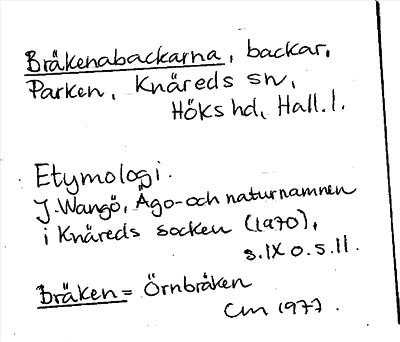 Bråkenabackarna, backar.
Parken, Knäreds sn,
Höks hd, Hall.l.
Etymologi.
J. Wangö, Ägo- och naturnamnen
i Knäreds socken (1970),
s. IX o. s. 11.
Bråken = Örnbråken
Cm 1977.